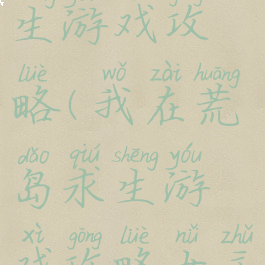 生游戏攻
lüè wǒ zài huāng
略(我在荒
dǎo qiú shēng yóu
岛求生游
xì gōng lüè nǚ zhǔ
戏攻略女主